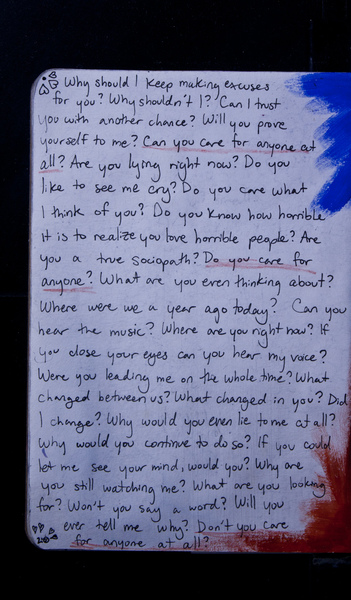 Why should I keep making excuses
for you? Why shouldn't I? Can I trust
you with another chance? Will you prove
yourself to me? Can you care for anyone at
all? Are you lying right now? Do you
like to see me cry? Do you care what
I think of you? Do you know how horrible
it is to realize you love horrible people? Are
you a true sociopath? Do you care for
anyone? What are you even thinking about?
Where were we a year ago today? Can you
hear the music? Where are you right now? If
you close your eyes can you hear my voice?
Were you leading me on the whole time? What
changed between us? What changed in you? Did
I change? Why would you even lie to me at all?
Why would you continue to do so? If you could
let me see your mind, would you? Why are
you still watching me? What are you looking
for? Won't you say a word? Will you
ever tell me why? Don't you care
for anyone at all?